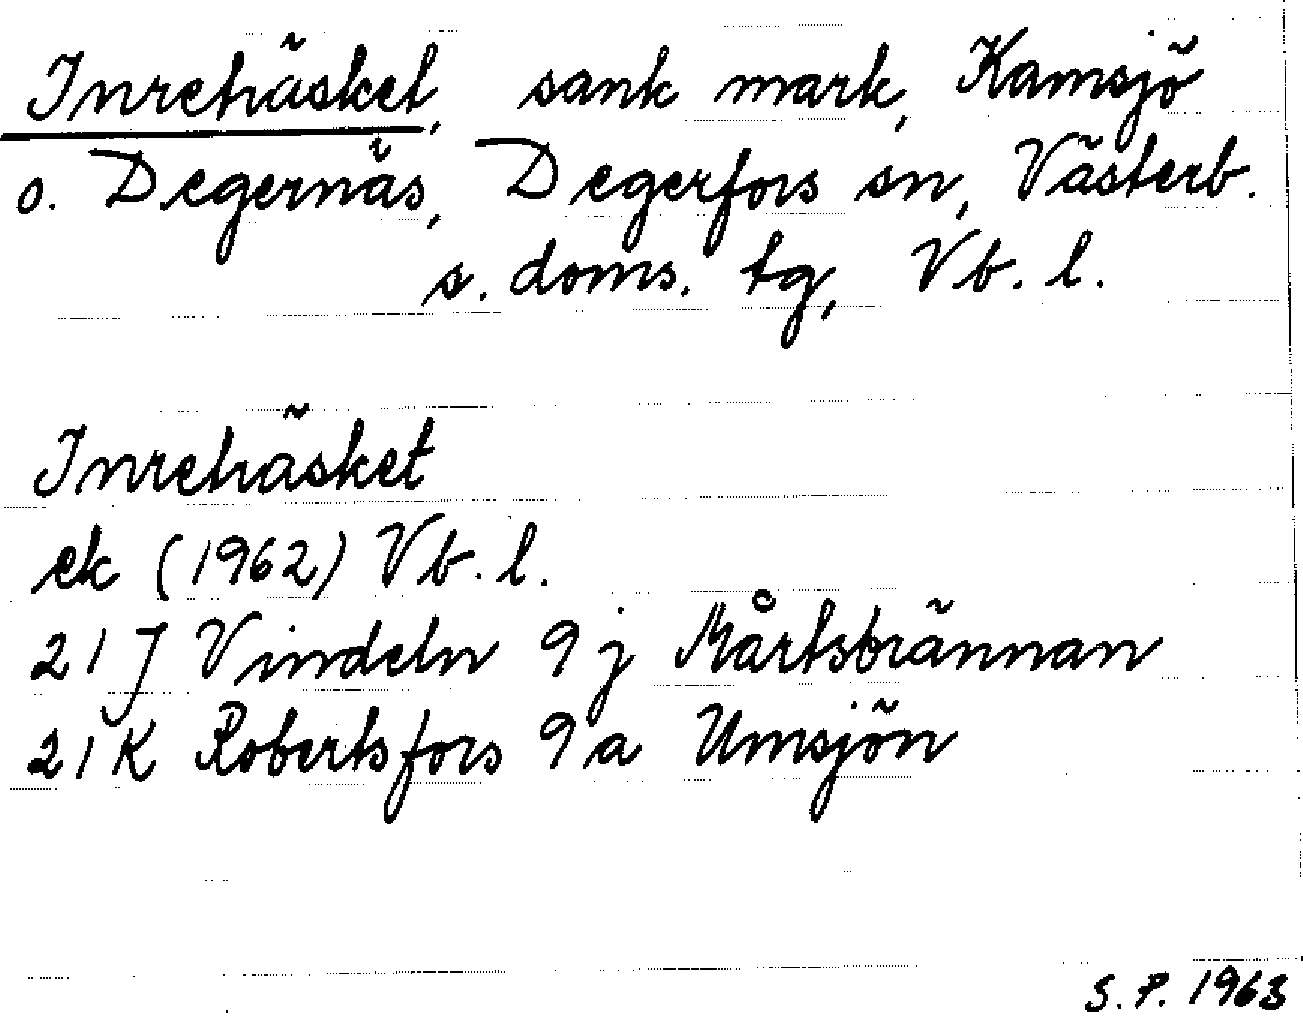 Inrehäsket, sank mark, Kamsjö
o. Degernäs, Degerfors sn, Västerb.
s. doms. tg, Vb. l.
Inrehäsket
ek (1962) Vb. l.
21 J Vindeln 9 j Mårtsbrännan
21 K Robertsfors 9 a Umsjön
S. P. 1963